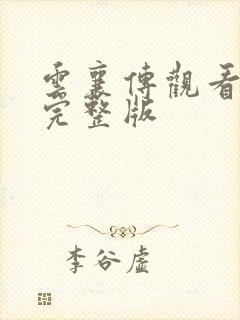 雲襄傳觀看
完整版
李谷虛